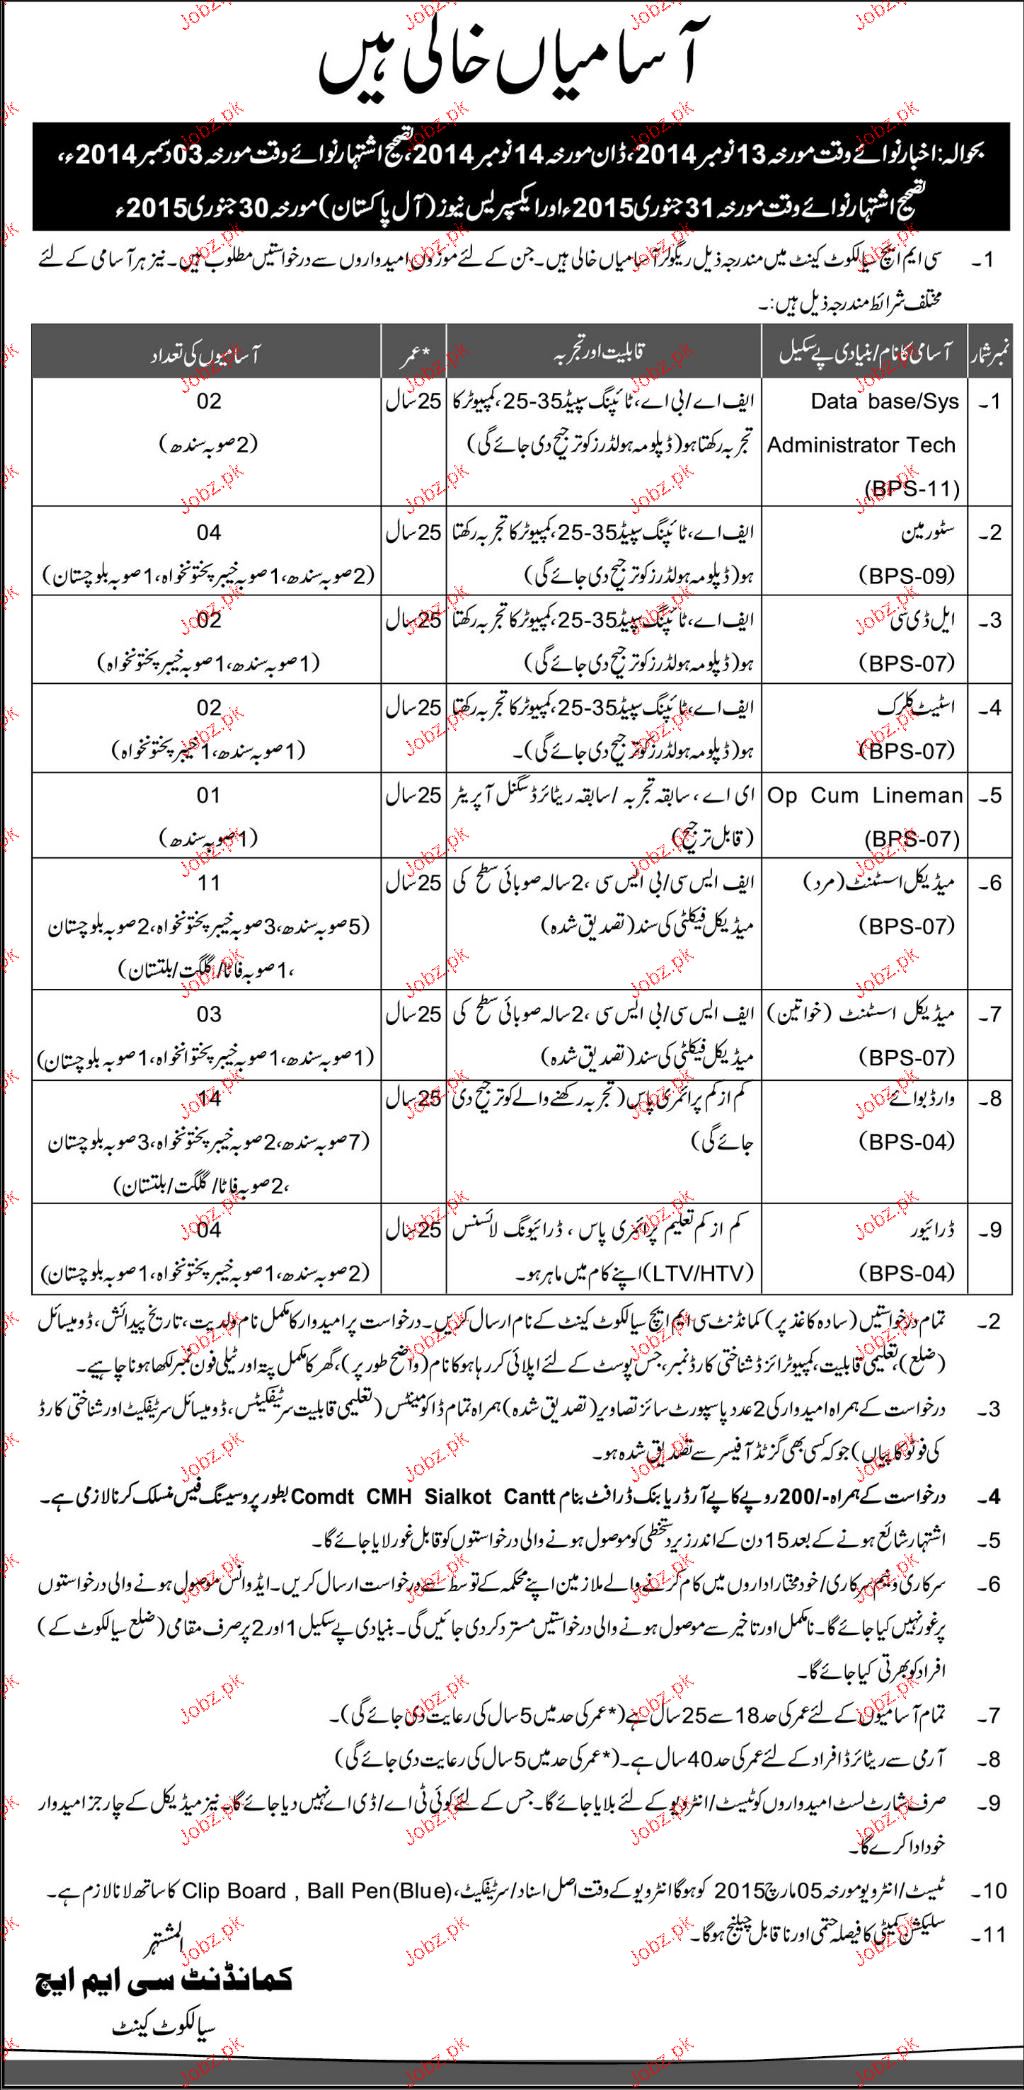 آسامیاں خالی ہیں
بحوالہ: اخبار نوائے وقت مورخہ 13 نومبر 2014، ڈان مورخہ 14 نومبر 2014، تصحیح اشتہار نوائے وقت مورخہ 03 دسمبر 2014ء،
تصحیح اشتہار نوائے وقت مورخہ 31 جنوری 2015ء اور ایکسپریس نیوز (آل پاکستان) مورخہ 30 جنوری 2015ء
1۔ سی ایم ایچ سیالکوٹ کینٹ میں مندرجہ ذیل ریگولر آسامیاں خالی ہیں۔ جن کے لئے موزوں امیدواروں سے درخواستیں مطلوب ہیں۔ نیز ہر آسامی کے لئے
مختلف شرائط مندرجہ ذیل ہیں:۔
نمبر شمار آسامی کا نام/بنیادی پے سکیل قابلیت اور تجربہ *عمر آسامیوں کی تعداد
1۔ Data base/Sys ایف اے/بی اے، ٹائپنگ سپیڈ 35-25، کمپیوٹر کا 25 سال 02
Administrator Tech تجربہ رکھتا ہو (ڈپلومہ ہولڈرز کو ترجیح دی جائے گی) (2 صوبہ سندھ)
(BPS-11)
2۔ سٹورمین ایف اے، ٹائپنگ سپیڈ 35-25، کمپیوٹر کا تجربہ رکھتا 25 سال 04
(BPS-09) ہو (ڈپلومہ ہولڈرز کو ترجیح دی جائے گی) (2 صوبہ سندھ، 1 صوبہ خیبر پختونخواہ، 1 صوبہ بلوچستان)
3۔ ایل ڈی سی ایف اے، ٹائپنگ سپیڈ 35-25، کمپیوٹر کا تجربہ رکھتا 25 سال 02
(BPS-07) ہو (ڈپلومہ ہولڈرز کو ترجیح دی جائے گی) (1 صوبہ سندھ، 1 صوبہ خیبر پختونخواہ)
4۔ اسٹیٹ کلرک ایف اے، ٹائپنگ سپیڈ 35-25، کمپیوٹر کا تجربہ رکھتا 25 سال 02
(BPS-07) ہو (ڈپلومہ ہولڈرز کو ترجیح دی جائے گی)۔ (1 صوبہ سندھ، 1 خیبر پختونخواہ)
5۔ Op Cum Lineman ای اے، سابقہ تجربہ/سابقہ ریٹائرڈ سگنل آپریٹر 25 سال 01
(BPS-07) (قابل ترجیح) (1 صوبہ سندھ)
6۔ میڈیکل اسسٹنٹ (مرد) ایف ایس سی/بی ایس سی، 2 سالہ صوبائی سطح کی 25 سال 11
(BPS-07) میڈیکل فیکلٹی کی سند (تصدیق شدہ) (5 صوبہ سندھ، 3 صوبہ خیبر پختونخواہ، 2 صوبہ بلوچستان
،1 صوبہ فاٹا/گلگت/بلتستان)
7۔ میڈیکل اسسٹنٹ (خواتین) ایف ایس سی/بی ایس سی، 2 سالہ صوبائی سطح کی 25 سال 03
(BPS-07) میڈیکل فیکلٹی کی سند (تصدیق شدہ) (1 صوبہ سندھ، 1 صوبہ خیبر پختوانخواہ، 1 صوبہ بلوچستان)
8۔ وارڈ بوائے کم از کم پرائمری پاس (تجربہ رکھنے والے کو ترجیح دی 25 سال 14
(BPS-04) جائے گی) (7 صوبہ سندھ، 2 صوبہ خیبر پختونخواہ، 3 صوبہ بلوچستان
،2 صوبہ فاٹا/گلگت/بلتستان)
9۔ ڈرائیور کم از کم تعلیم پرائمری پاس، ڈرائیونگ لائسنس 25 سال 04
(BPS-04) (LTV/HTV) اپنے کام میں ماہر ہو۔ (2 صوبہ سندھ، 1 صوبہ خیبر پختونخواہ، 1 صوبہ بلوچستان)
2۔ تمام درخواستیں (سادہ کاغذ پر) کمانڈنٹ سی ایم ایچ سیالکوٹ کینٹ کے نام ارسال کریں۔ درخواست پر امیدوار کا مکمل نام ولدیت، تاریخ پیدائش، ڈومیسائل
(ضلع)، تعلیمی قابلیت، کمپیوٹرائزڈ شناختی کارڈ نمبر، جس پوسٹ کے لئے اپلائی کر رہا ہو کا نام (واضح طور پر)، گھر کا مکمل پتہ اور ٹیلی فون نمبر لکھا ہونا چاہیے۔
3۔ درخواست کے ہمراہ امیدوار کی 2 عدد پاسپورٹ سائز تصاویر (تصدیق شدہ) ہمراہ تمام ڈاکومینٹس (تعلیمی قابلیت سرٹیفکیٹس، ڈومیسائل سرٹیفکیٹ اور شناختی کارڈ
کی فوٹو کاپیاں) جو کہ کسی بھی گزٹڈ آفیسر سے تصدیق شدہ ہو۔
4۔ درخواست کے ہمراہ -/200 روپے کا پے آرڈر یا بنک ڈرافٹ بنام Comdt CMH Sialkot Cantt بطور پروسیسنگ فیس منسلک کرنا لازمی ہے۔
5۔ اشتہار شائع ہونے کے بعد 15 دن کے اندر زیر دستخطی کو موصول ہونے والی درخواستوں کو قابل غور لایا جائے گا۔
6۔ سرکاری و نیم سرکاری/خود مختار اداروں میں کام کرنے والے ملازمین اپنے محکمہ کے توسط سے درخواست ارسال کریں۔ ایڈوانس موصول ہونے والی درخواستوں
پر غور نہیں کیا جائے گا۔ نامکمل اور تاخیر سے موصول ہونے والی درخواستیں مسترد کر دی جائیں گی۔ بنیادی پے سکیل 1 اور 2 پر صرف مقامی (ضلع سیالکوٹ کے)
افراد کو بھرتی کیا جائے گا۔
7۔ تمام آسامیوں کے لئے عمر کی حد 18 سے 25 سال ہے (*عمر کی حد میں 5 سال کی رعایت دی جائے گی)۔
8۔ آرمی سے ریٹائرڈ افراد کے لئے عمر کی حد 40 سال ہے۔ (*عمر کی حد میں 5 سال کی رعایت دی جائے گی)
9۔ صرف شارٹ لسٹ امیدواروں کو ٹیسٹ/انٹرویو کے لئے بلایا جائے گا۔ جس کے لئے کوئی ٹی اے/ڈی اے نہیں دیا جائے گا۔ نیز میڈیکل کے چارجز امیدوار
خود ادا کرے گا۔
10۔ ٹیسٹ/انٹرویو مورخہ 05 مارچ 2015 کو ہوگا انٹرویو کے وقت اصل اسناد/سرٹیفکیٹ، Clip Board , Ball Pen(Blue) کا ساتھ لانا لازم ہے۔
11۔ سلیکشن کمیٹی کا فیصلہ حتمی اور ناقابل چیلنج ہوگا۔
المشتہر
کمانڈنٹ سی ایم ایچ
سیالکوٹ کینٹ
Jobz.pk